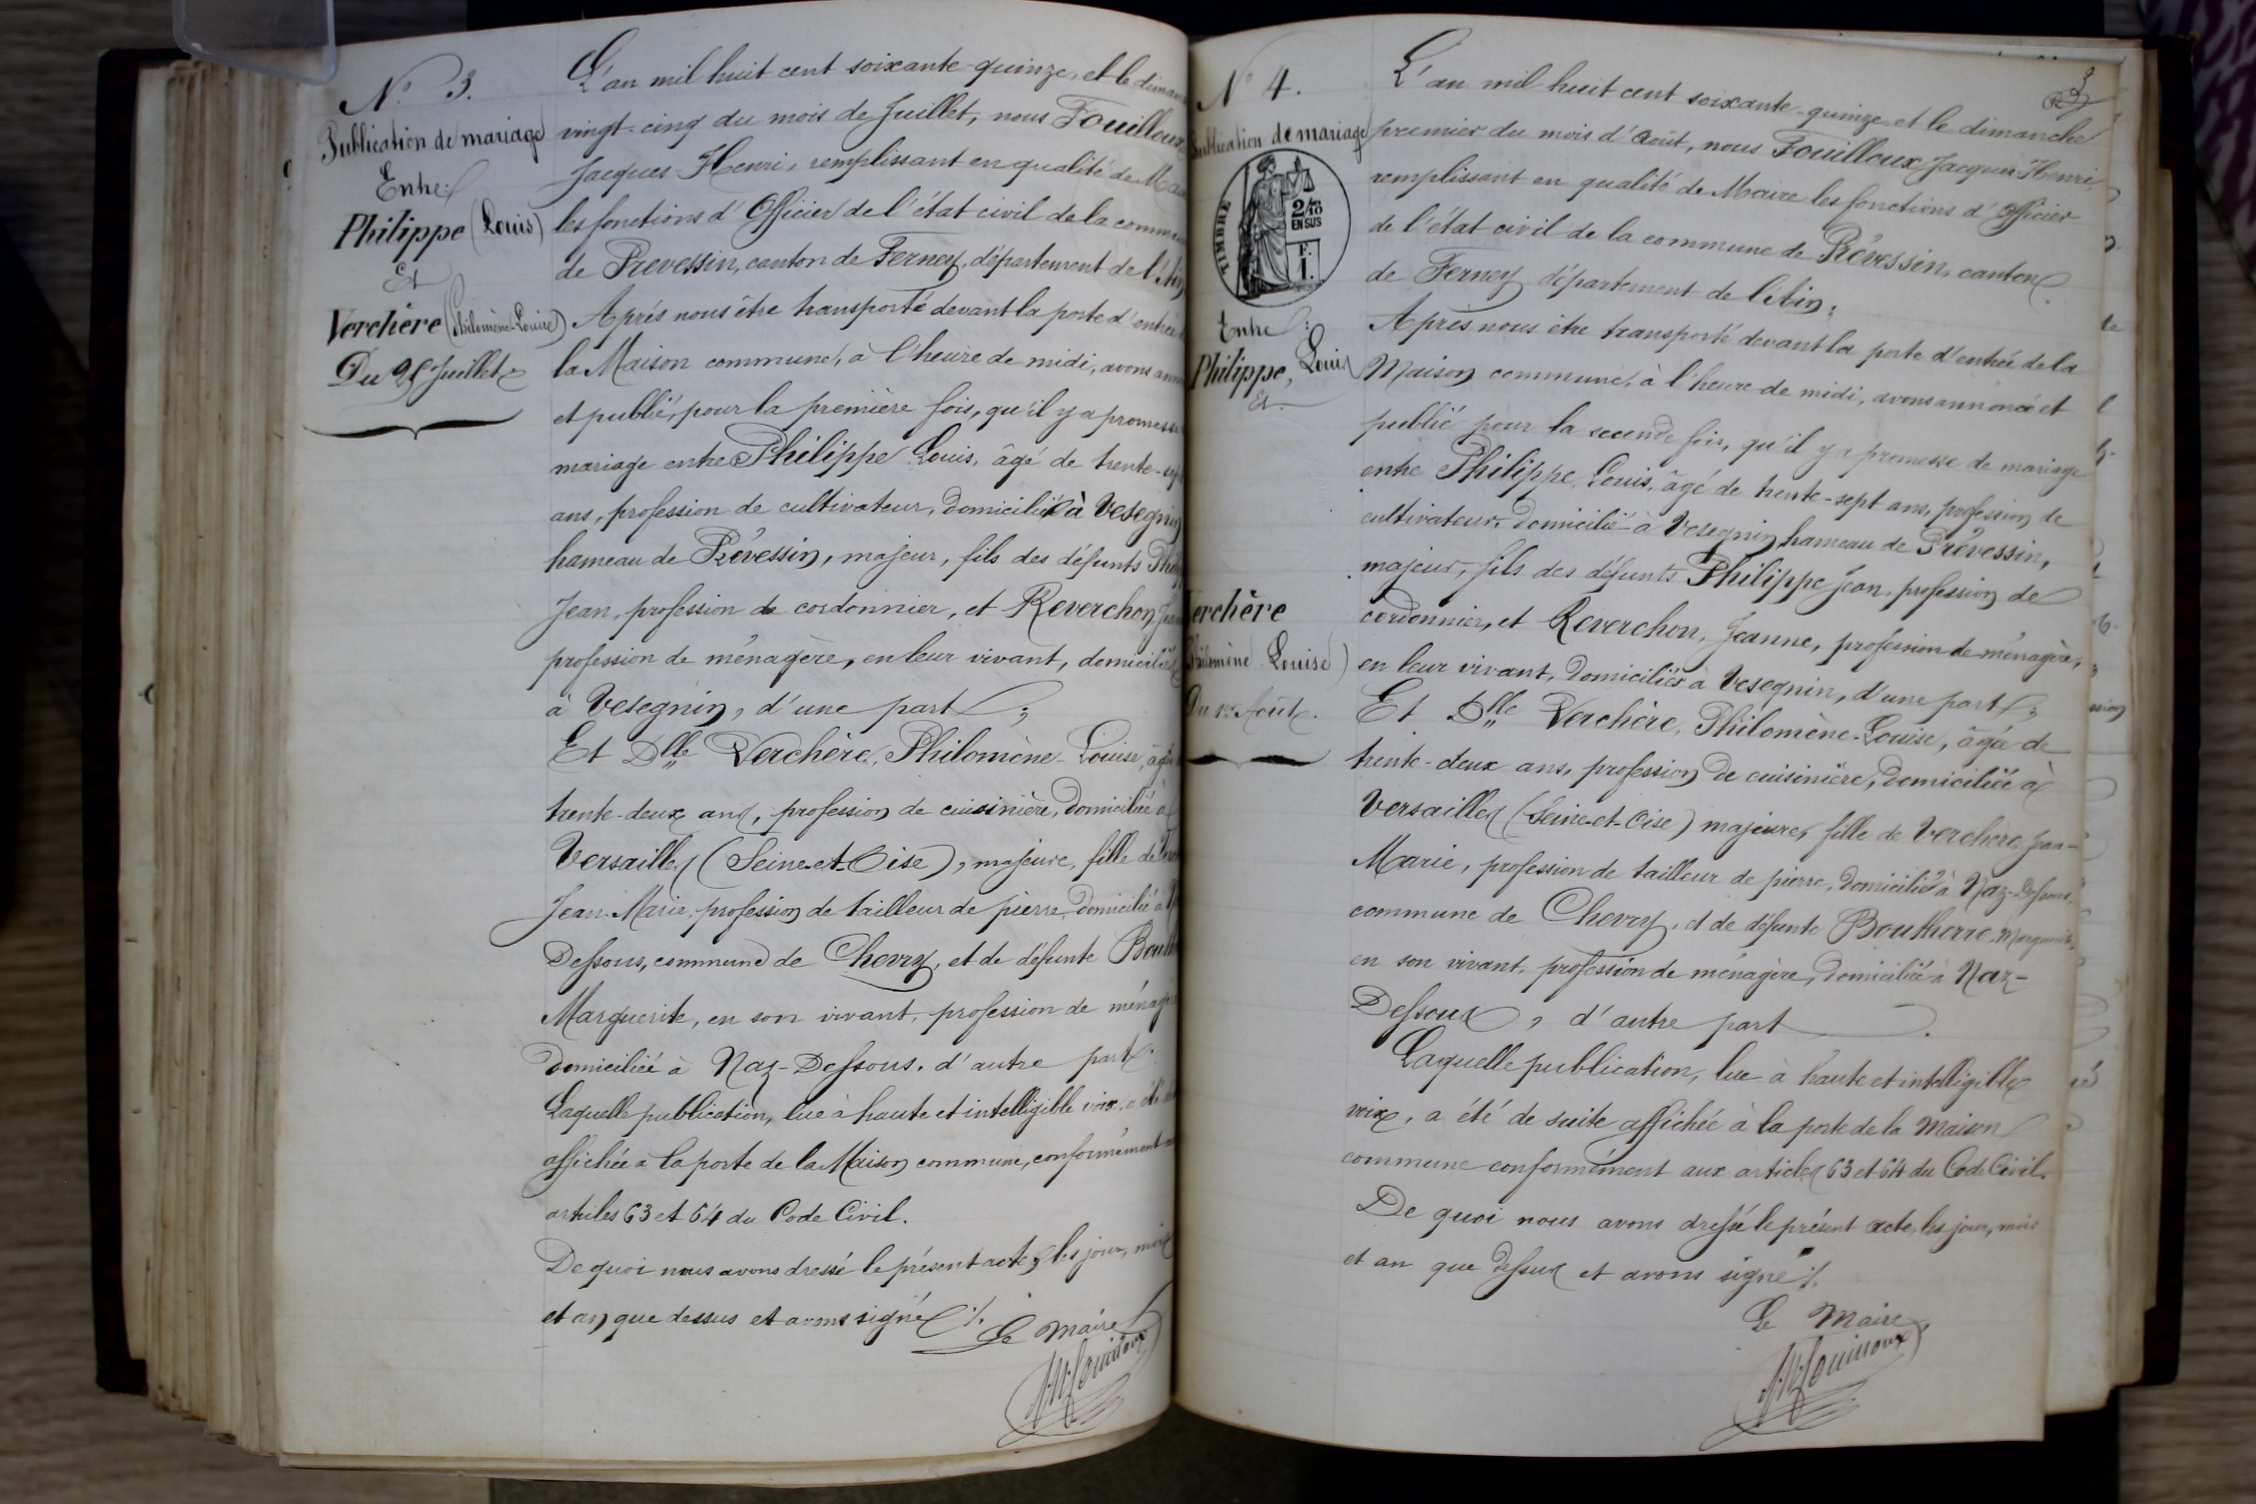 N° 3.
Publication de mariage
Entre
Philippe (Louis)
Et
Verchère (Philomène-Louise)
Du 25 Juillet
L'an mil huit cent soixante-quinze, et le
vingt-cinq du mois de Juillet, nous Fouilloux
Jacques Henri, remplissant en qualité de
les fonctions d'Officier de l'état civil de la
de Prevessin, canton de Ferney, département de l'Ain
Après nous être transporté devant la porte d'entrée
la Maison commune, à l'heure de midi, avons
et publié, pour la première fois, qu'il y a promesse
mariage entre Philippe Louis, âgé de trente-sept
ans, profession de cultivateur, domicilié à Vesegnin
hameau de Prévessin, majeur, fils des défunts
Jean, profession de cordonnier, et Reverchon
profession de ménagère, en leur vivant, domiciliés
à Vesegnin, d'une part ;
Et Dlle Verchère, Philomène-Louise, âgée
trente-deux ans, profession de cuisinière, domiciliée à
Versailles (Seine-et-Oise), majeure, fille de
Jean-Marie, profession de tailleur de pierre, domicilié à
Dessous, commune de Chevry, et de défunte
Marguerite, en son vivant, profession de
domiciliée à Naz-Dessous, d'autre part.
Laquelle publication, lue à haute et intelligible voix, a été
affichée à la porte de la Maison commune, conformément
articles 63 et 64 du Code Civil.
De quoi nous avons dressé le présent acte, les jour, mois
et an que dessus et avons signé ./.
Le Maire
N° 4.
Publication de mariage
TIMBRE
2/10
EN SUS
F.
1.
Entre :
Philippe, Louis
Et
Verchère
Philomène-Louise)
Du 1er Août.
3
L'an mil huit cent soixante-quinze et le dimanche
premier du mois d'Août, nous Fouilloux Jacques Henri
remplissant en qualité de Maire les fonctions d'Officier
de l'état civil de la commune de Prévessin, canton
de Ferney département de l'Ain ;
Après nous être transporté devant la porte d'entrée de la
Maison commune, à l'heure de midi, avons annoncé et
publié pour la seconde fois, qu'il y a promesse de mariage
entre Philippe Louis, âgé de trente-sept ans, profession de
cultivateur, domicilié à Vesegnin hameau de Prévessin,
majeur, fils des défunts Philippe Jean, profession de
cordonnier, et Reverchon, Jeanne, profession de ménagère,
en leur vivant, domiciliés à Vesegnin, d'une part ;
Et Dlle Verchère, Philomène-Louise, âgée de
trente-deux ans, profession de cuisinière, domiciliée à
Versailles (Seine-et-Oise) majeure, fille de Verchère Jean-
Marie, profession de tailleur de pierre, domicilié à Naz-Dessous,
commune de Chevry, et de défunte Boutherre, Marguerite,
en son vivant, profession de ménagère, domiciliée à Naz-
Dessous, d'autre part .
Laquelle publication, lue à haute et intelligible
voix, a été de suite affichée à la porte de la Maison
commune conformément aux articles 63 et 64 du Code Civil.
De quoi nous avons dressé le présent acte, les jour, mois
et an que dessus et avons signé ./.
Le Maire,